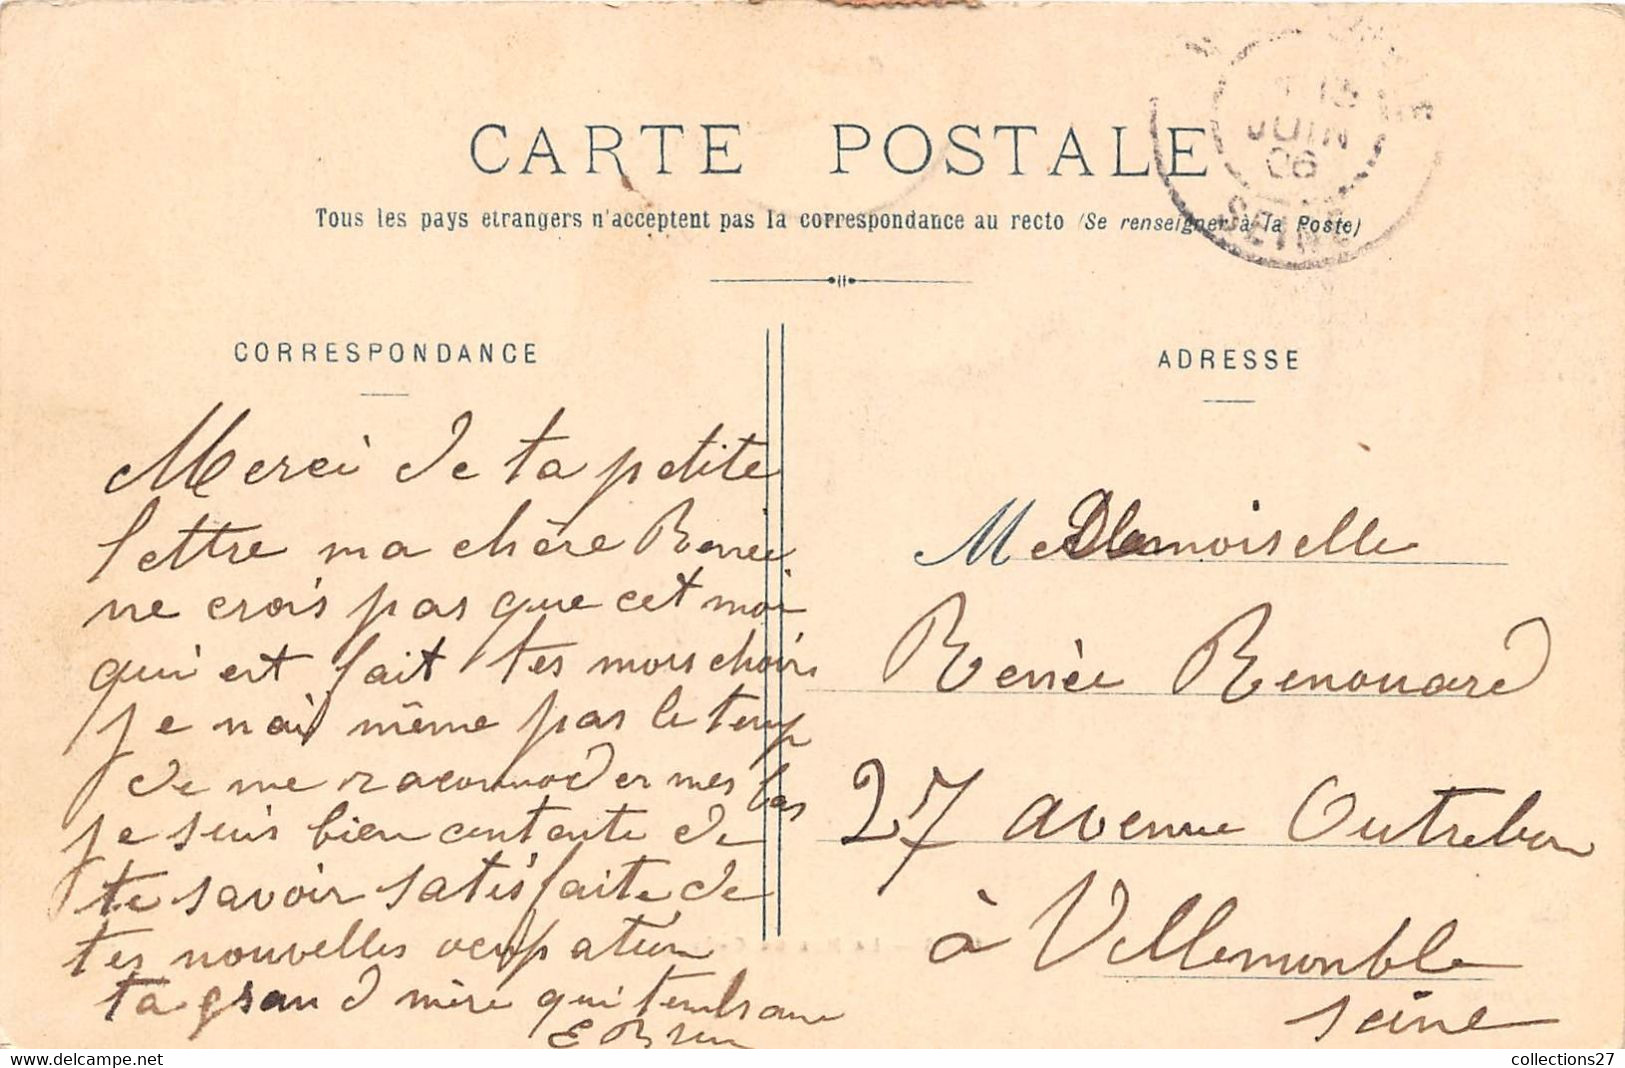 CARTE POSTALE
Tous les pays etrangers n'acceptent pas la correspondance au recto (Se renseigner à la Poste)
13
JUIN
06
SEINE
CORRESPONDANCE
Merci de ta petite
lettre ma chère Renée
ne crois pas que cet moi
qui est fait tes mouschoirs
je n'ai même pas le temp
de me racommoder mes bas
je suis bien contente de
te savoir satisfaite de
tes nouvelles ocupation
ta grand mère qui tembrasse
E Brun
ADRESSE
Medemoiselle
Renée Renouard
27 avenue Outrebon
à Villemonble
Seine
collections27